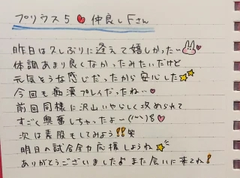 プリウス5❤仲良しFさん
昨日は久しぶりに逢えて嬉しかったー
体調あまり良くなかったみたいだけど
元気そうな感じだったから安心した
今回も痴漢プレイだったねー❤
前回同様に沢山いやらしく攻められて
すごく興奮しちゃったよー(^^)8❤
次は着服もしてみよう!!
明日の試合全力応援しようね
ありがとうございましたまた会いに来てね!